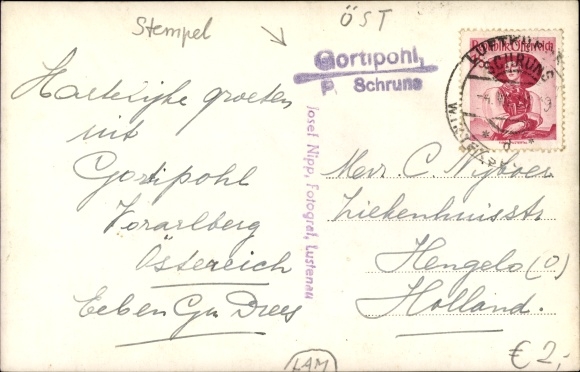 Stempel
ÖST
Gortipohl,
p. Schruns
Republik Österreich
LUFTKURORT
SCHRUNS
Hartelijke groeten
uit
Gortipohl
Vorarlberg
Österreich
Josef Nipp, Fotograf, Lustenau
Mevr. C
Ziekenhuisstr
Hengelo (O)
Holland.
LAM
€ 2,-